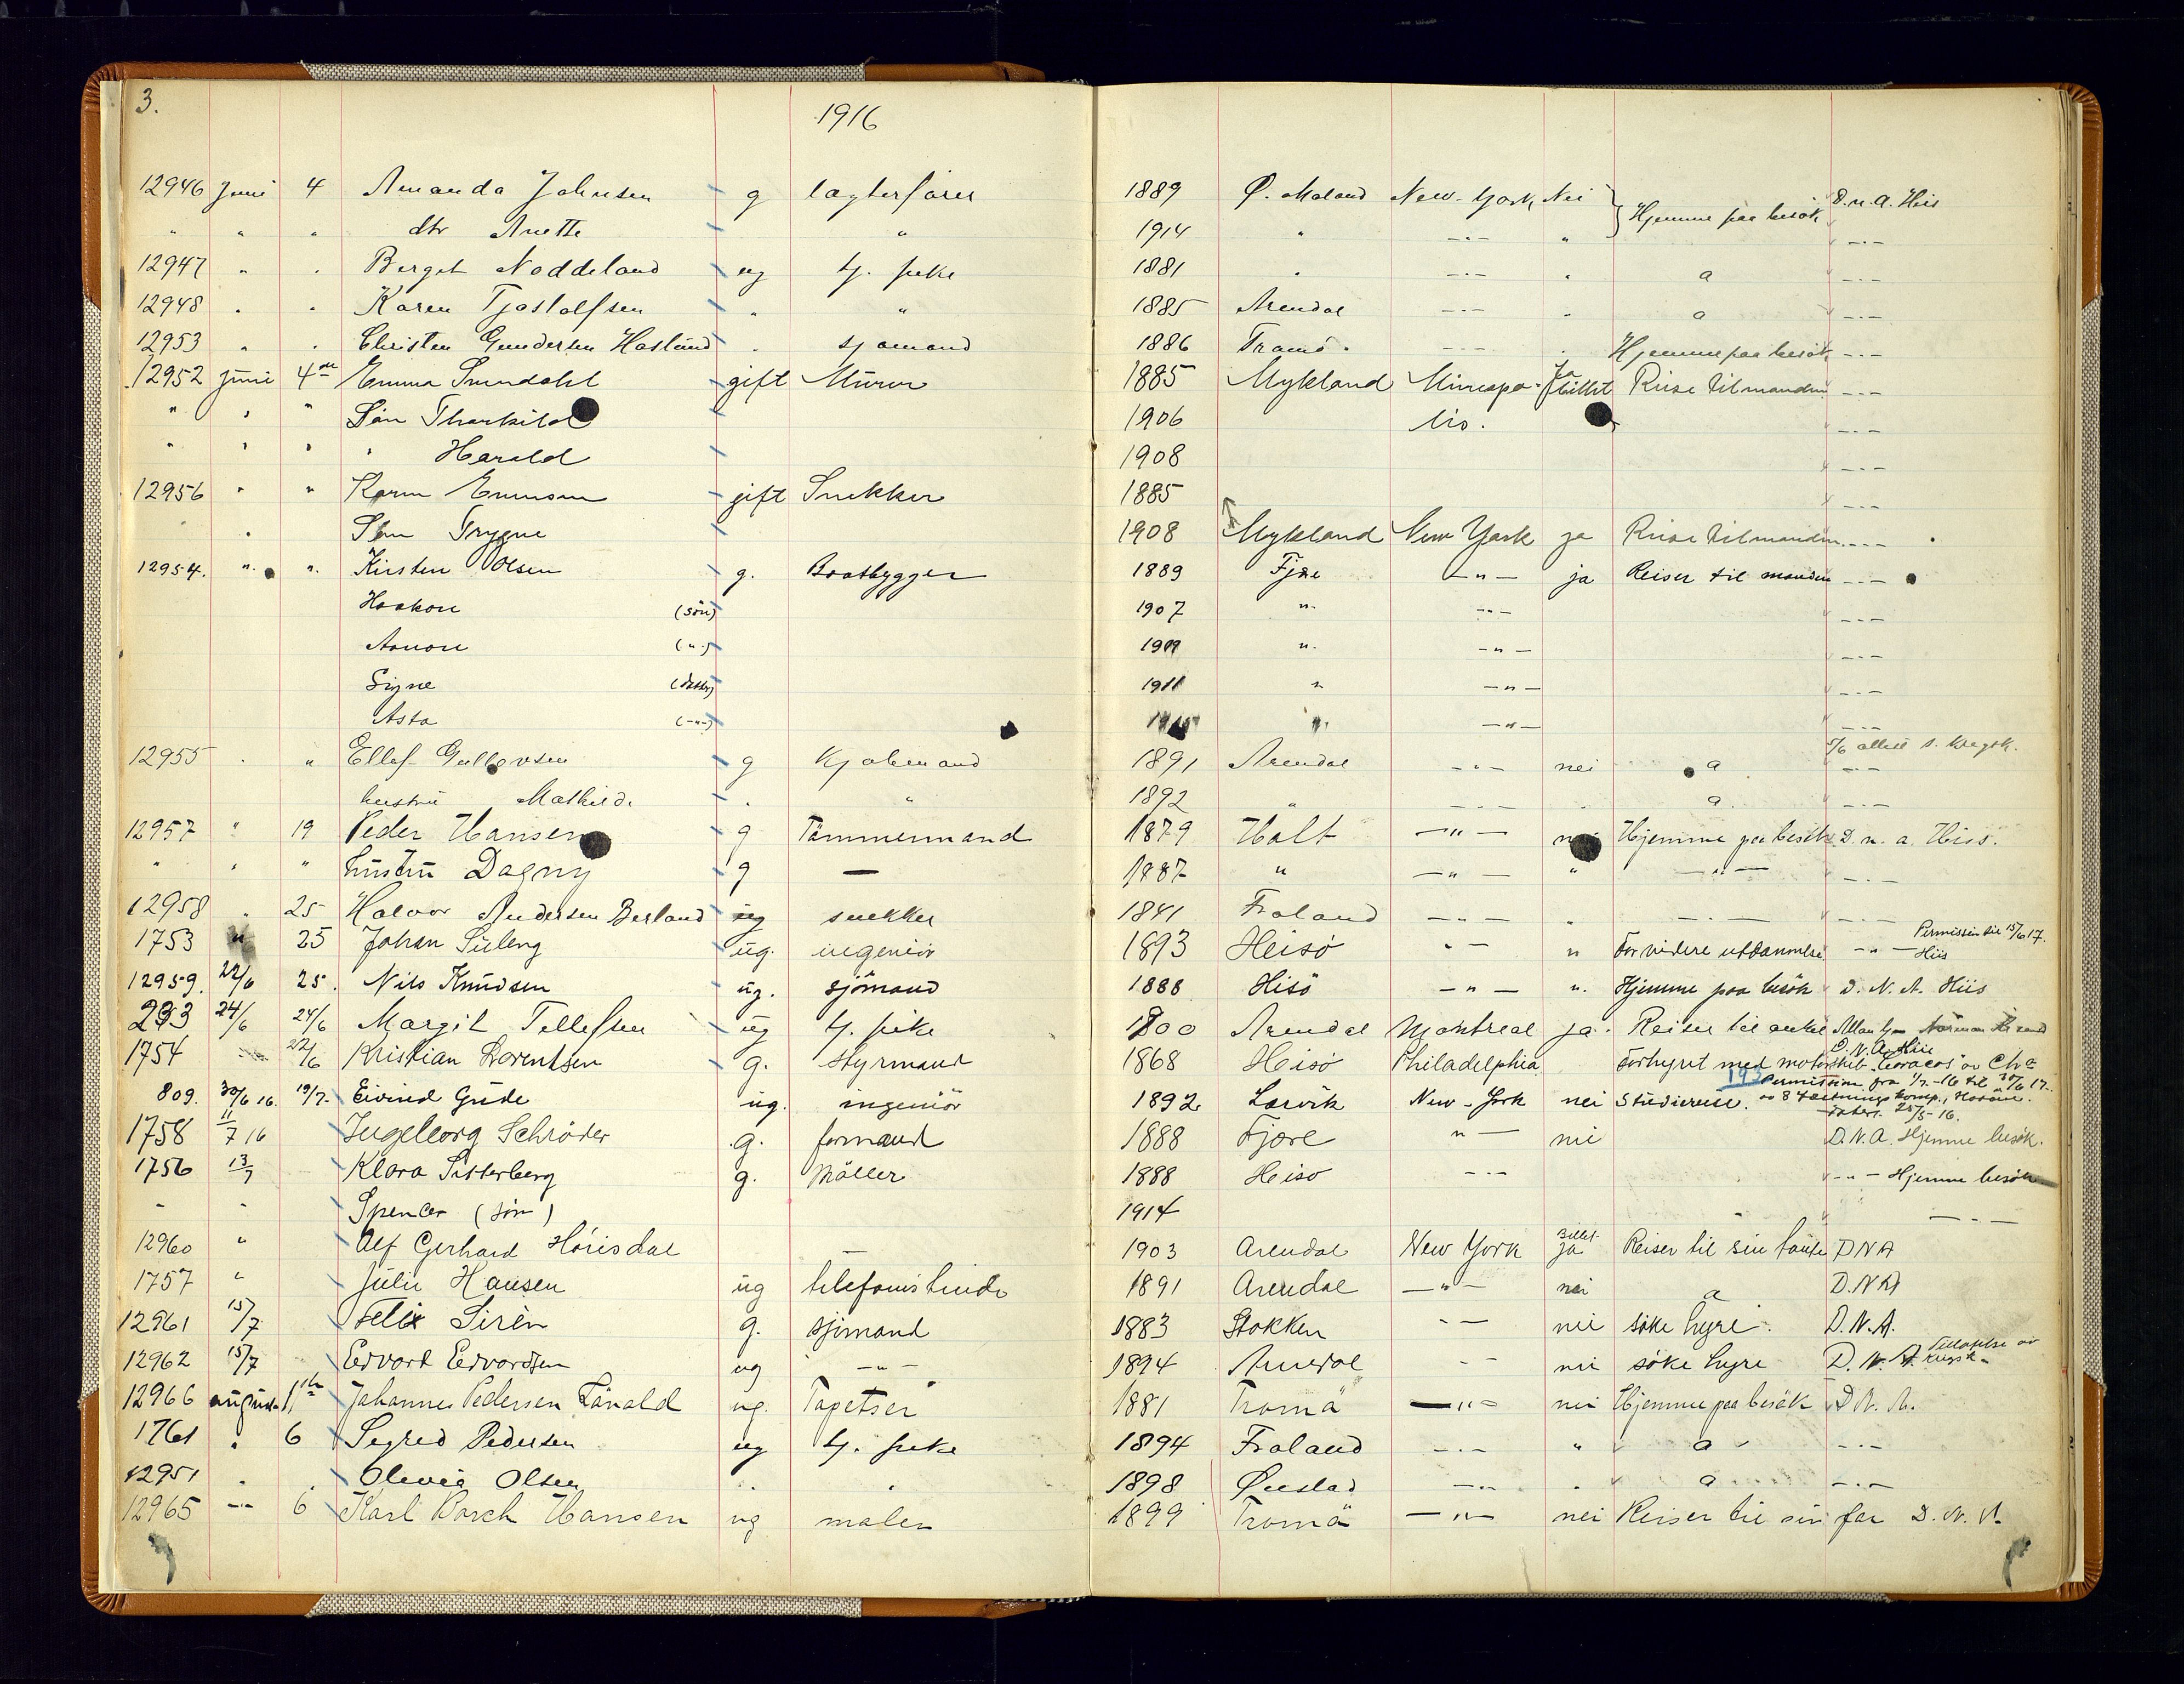 3.
1916
12946 Juni 4 Amanda Johnsen g lagterfører 1889 Ø. Moland New-York Nei } Hjemme paa besök D.n.a. Hiis
" " " dtr Anette " 1914 " -"- " -"-
12947 " " Berget Noddeland ug tj. pike 1881 " -"- " a -"-
12948 " " Karen Tjøstolfsen " " 1885 Arendal -"- " a -"-
12953 " " Christen Gundersen Haslund " sjømand 1886 Tromö -"- " Hjemme paa besök -"-
12952 Juni 4de Emma Smedahl gift Murer 1885 Mykland Mineapo- Ja billet Reise til manden -"-
" " " Sön Thorkild 1906 lis. -"-
" " " " Harald 1908 -"-
12956 " " Karen Emmson gift Snekker 1885 -"-
" Sön Trygve 1908 Mykland New York ja Reise til manden -"-
12954. " " Kirsten Olsen g. Baatbygger 1889 Fjære -"- ja Reiser til manden -"-
Haakon (sön) 1907 " -"- -"-
Arnon (") 1909 " -"- -"-
Signe (datter) 1911 " -"- -"-
Asta (-"-) " -"- -"-
12955 " " Ellef Gullovsen g Kjøbmand 1891 Arendal -"- nei a -"-
hustru Mathilde " " 1892 " -"- " a. -"-
12957 " 19 Peder Hansen g Tömmermand 1879 Holt -"- Hjemme paa besök D. n. a. Hiis.
" " " hustru Dagny g — 1887 " -"- " -"- -"-
12958 " 25 Halvor Andersen Berland ug snekker 1841 Froland -"- " -"- -"-
1753 " 25 Johan Süleng ug. ingeniör 1893 Heisö "- " For videre utdannelse -"- Hiis Permission til 15/6 17.
12959. 22/6 25. Nils Knudsen ug. sjömand 1888 Hisö -"- " Hjemme paa besök D. N. A. Hiis
293 24/6 24/6 Margit Tellefsen ug tj. pike 1900 Arendal Montreal ja. Reiser til onkel Allan
1754 22/6 Kristian Lorentsen g. styrmand 1868 Heisö Philadelphia Forhyret med motorskib D.N.A. Hiis
809. 30/6 16. 19/7. Eivind Gude ug. ingeniör 1892 Larvik New-York nei Studiereise. Permission fra 1/7-16 til
1758 11/7 16 Ingeborg Schröder g. formand 1888 Fjære "- nei D.N.A. Hjemme besök.
1756 13/7 Klara Sisterberg g. Möller 1888 Heiso -"- -"- Hjemme besök
" " Spencer (sön) 1914 -"-
12960 " Alf Gerhard Hörisdal — 1903 Arendal New York Billet ja Reiser til sin tante DNA
1757 " Julie Hansen ug telefonistinde 1891 Arendal -"- nei a D.N.A
12961 15/7 Felix Sirén g. sjömand 1883 Stokken "- nei söke hyre. D.N.A.
12962 15/7 Edvart Edvardsen ug -"- 1894 Arendal "- nei söke hyre D. N. A.
12966 august 1ste Johannes Pedersen Lånald ug. Tapetser 1881 Tromö -"- nei Hjemme paa besök D.N. A.
1761 " 6 Segred Pedersen ug tj. pike 1894 Froland -"- " a -"-
12951 " " Olevia Olsen " " 1898 Øiestad -"- " a -"-
12965 -"- 6 Karl Borch Hansen ug maler 1899 Tromö -"- nei Reiser til sin far D. N. A.